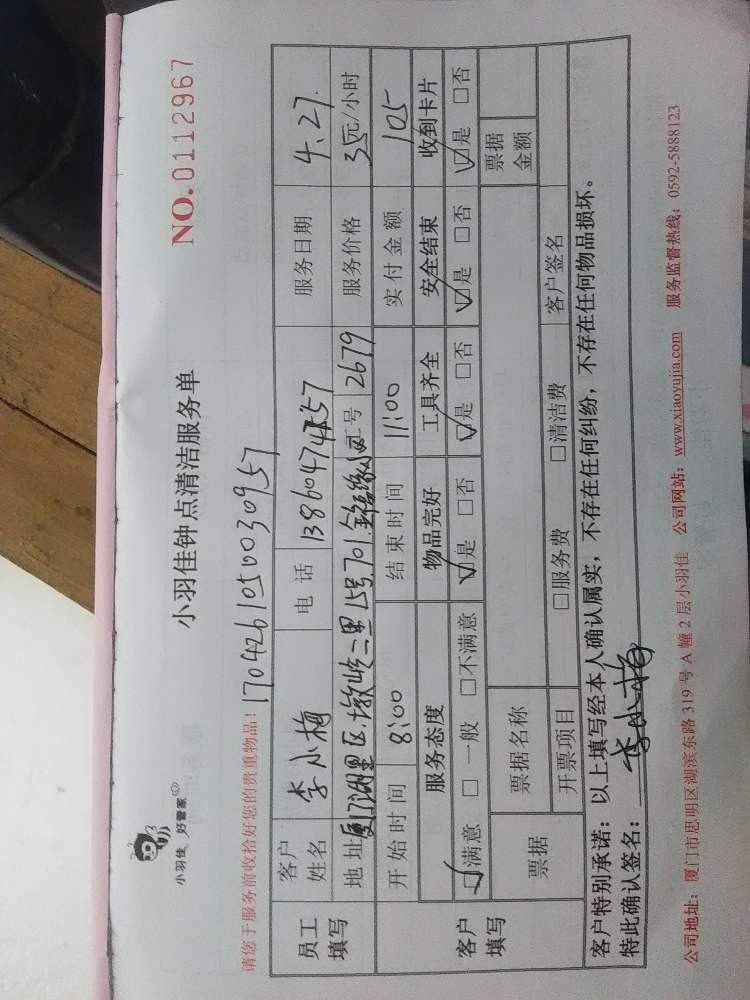 小羽佳 好管家
小羽佳钟点清洁服务单
NO.0112967
请您于服务前收拾好您的贵重物品！
1704261050030957
员工填写
客户姓名 李小梅 电话 13860474557 服务日期 4.27.
地址 厦门湖里区 墩岭二里15号701 工号 2679 服务价格 35元/小时
开始时间 8:00 结束时间 11:00 实付金额 105
客户填写
服务态度 物品完好 工具齐全 安全结束 收到卡片
☑满意 □一般 □不满意 ☑是 □否 ☑是 □否 ☑是 □否 ☑是 □否
票据 票据名称 票据金额
开票项目 □服务费 □清洁费 客户签名
客户特别承诺：以上填写经本人确认属实，不存在任何纠纷，不存在任何物品损坏。
特此确认签名：李小梅
公司地址：厦门市思明区湖滨东路 319 号 A 幢 2 层小羽佳 公司网站：www.xiaoyujia.com 服务监督热线：0592-5888123